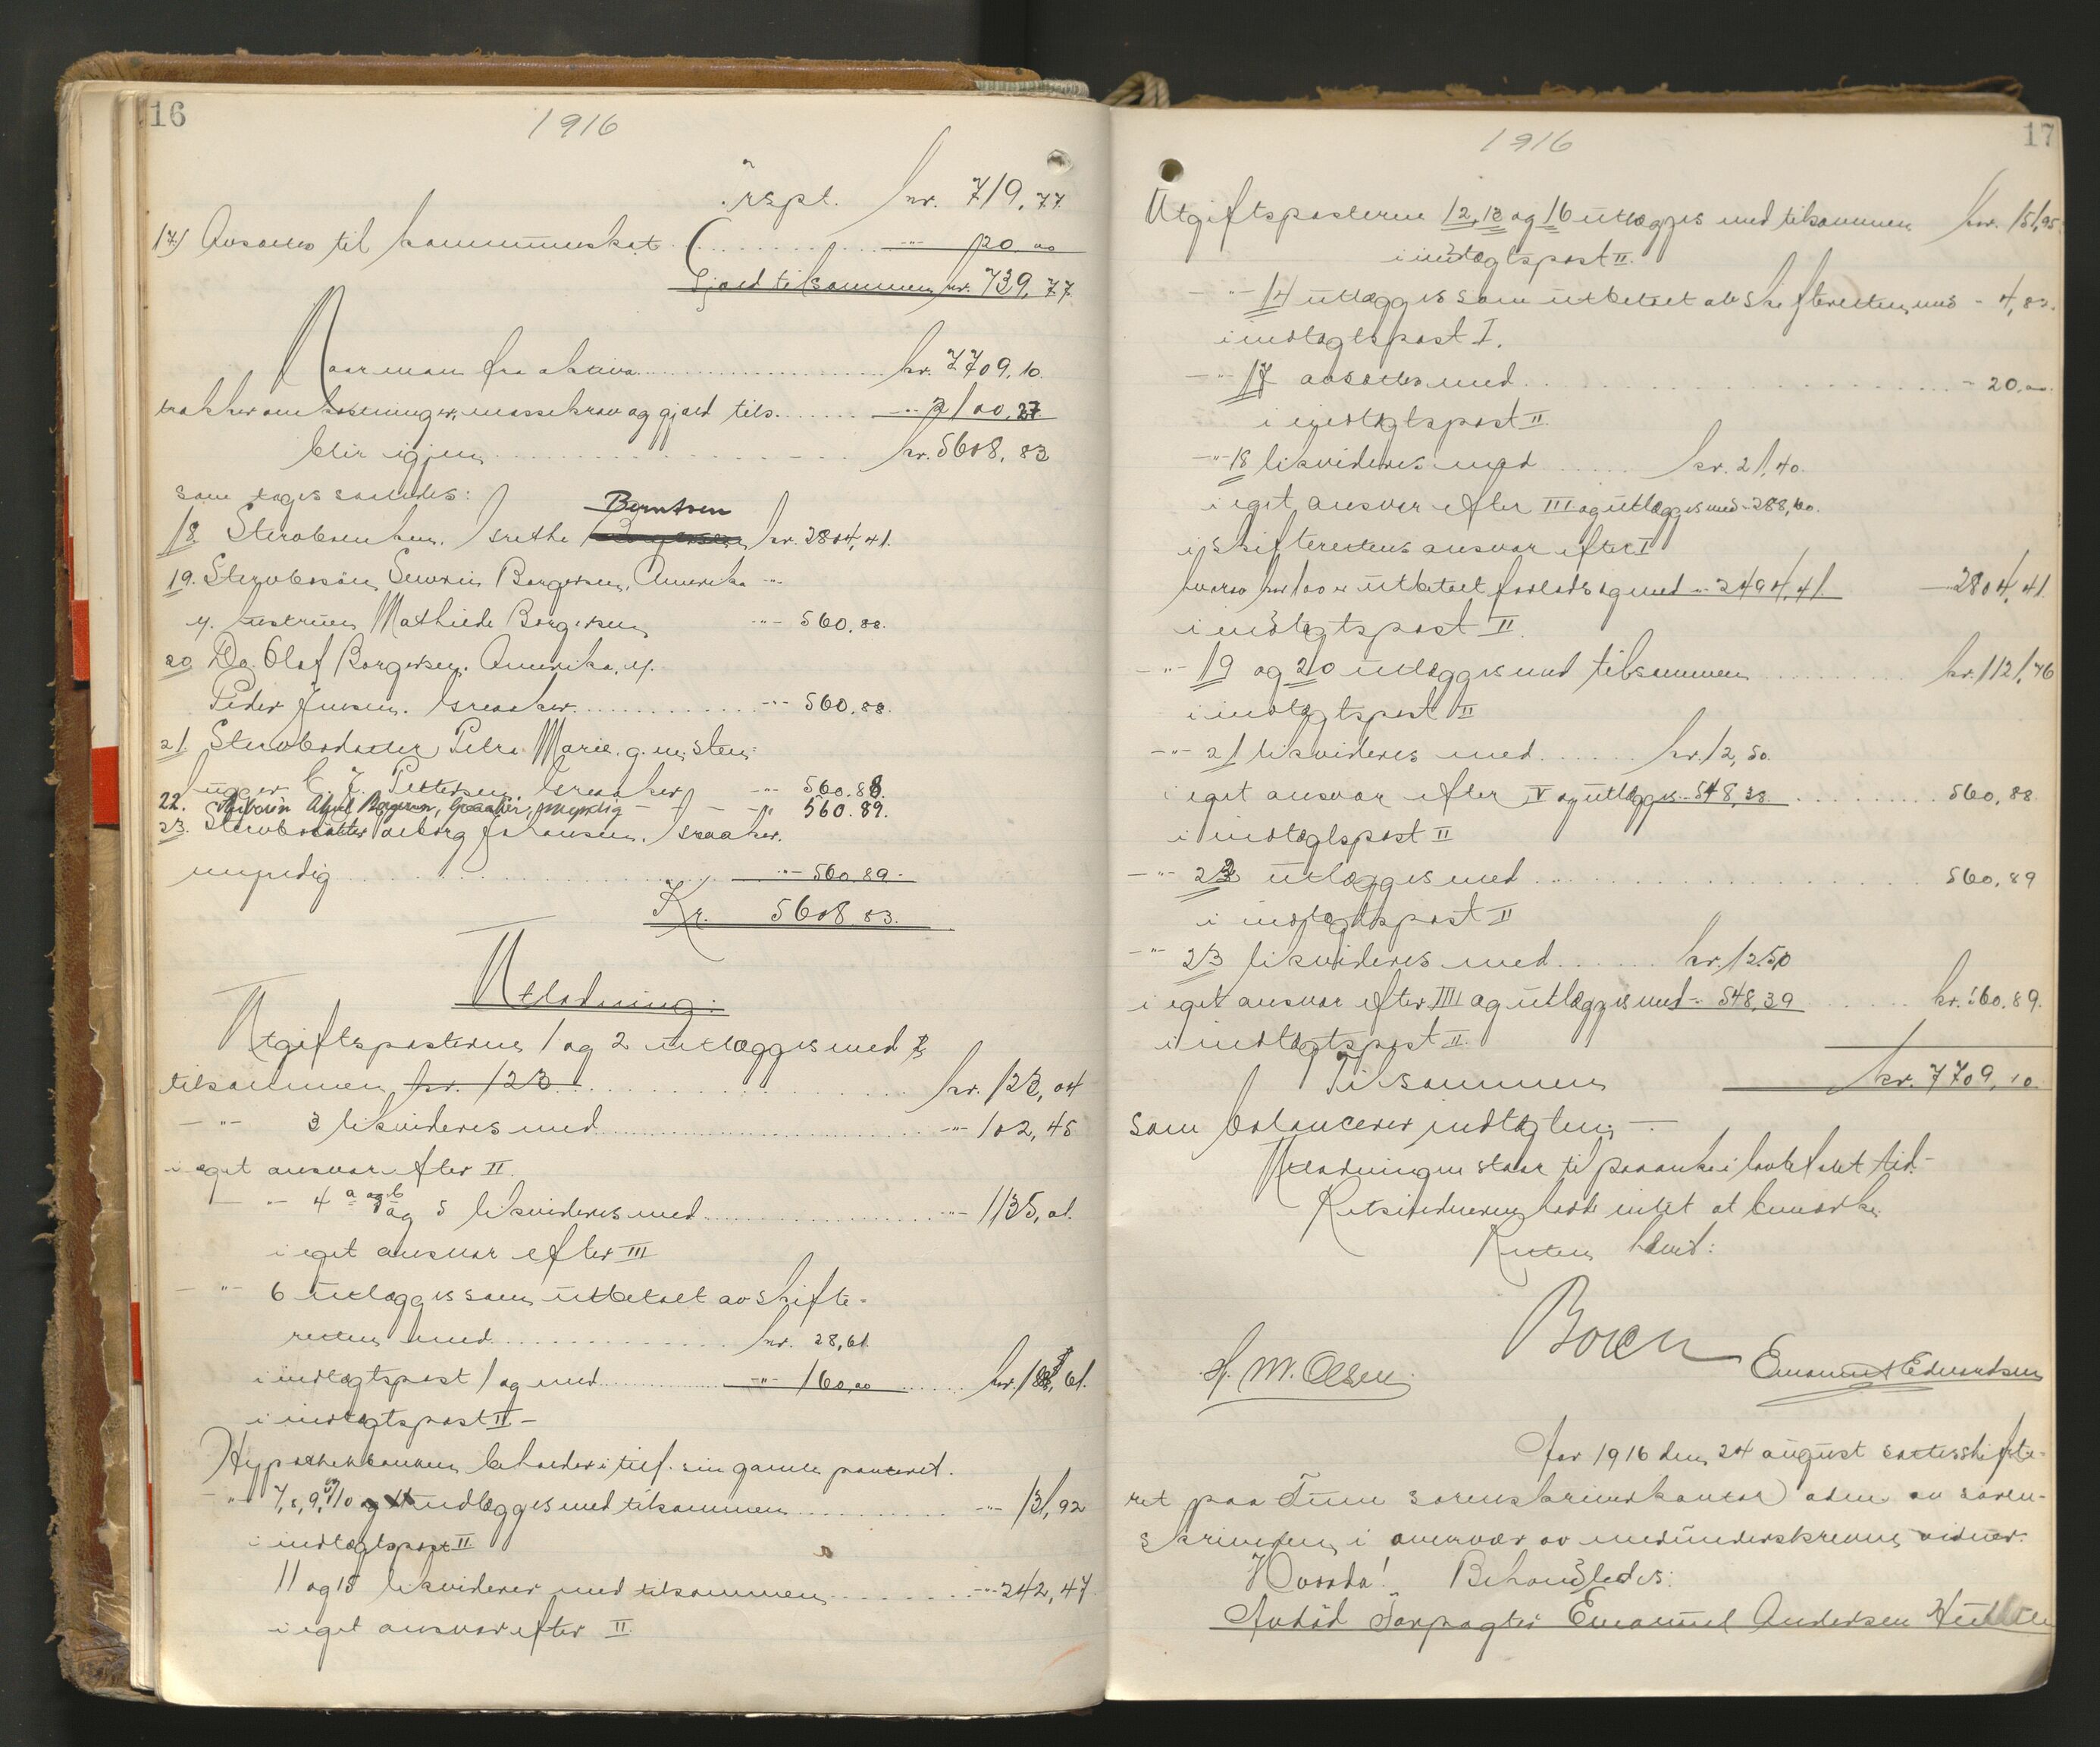 16
1916
Trspt. kr. 719,77
17) Avsættes til kommuneskat ........ -"- 20.00
Gjæld tilsammen kr. 739,77
Naar man fra aktiva ........ kr. 7709,10.
trækker omkostninger, massekrav og gjæld tils. ...... -"- 2100,27
blir igjen ........ kr. 5608,83
som tages saaledes:
Berntsen
18. Stervboenken, Grethe kr. 2804,41.
19. Stervbosön Severin Borgersen, Amerika -"-
v. hustruen Mathilde Borgersen -"- 560.88.
20 Do. Olaf Borgersen. Amerika, v.
Peder Jensen. Greaaker ........ -"- 560.88.
21. Stervbodatter Petra Marie. g. m. sten-
hugger C. J. Pettersen, Greaaker -"- 560.88.
22. Borgersen, Greaaker, myndig - " - -"- 560.89.
23. Stervbodatter Johansen. Greaaker.
umyndig ........ -"- 560.89-
Kr. 5608.83.
Utlodning:
Utgiftsposterne 1 og 2 utlægges med
tilsammen kr. 123 ........ kr. 123,04
-"- 3 likvideres med ........ -"- 102,45
i eget ansvar efter II.
-"- 4 a og b og 5 likvideres med ........ -"- 1135,01.
i eget ansvar efter III
-"- 6 utlægges som utbetalt av skifte-
retten med ........ kr. 28,61.
i indtægtspost 1 og med ........ -"- 160,00 ...... kr. 188,61.
i indtægtspost II -
Hypothekbanken beholder i tilf. sin gamle panteret.
-"- 7, 8, 9, 10 utlægges med tilsammen ........ -"- 131,92
i indtægtspost II
11 og 15 likviderer med tilsammen ........ -"- 242,47.
i eget ansvar efter II.
17
1916
Utgiftsposterne 12, 13 og 16 utlægges med tilsammen kr. 151,95.
i indtægtspost II.
-"- 14 utlægges som utbetalt av skifteretten med - 4,83.
i indtægtspost I.
-"- 17 avsættes med ........ - 20,00
i indtægtspost II.
-"- 18 likvideres med ...... kr. 21,40.
i eget ansvar efter III og utlægges med - 288,60.
i skifterettens ansvar efter I
hvorav kr 100 er utbetalt forlods og med -"- 2494,41. -"- 2804,41.
i indtægtspost II.
-"- 19 og 20 utlægges med tilsammen ........ kr. 1121,76
i indtægtspost II
-"- 21 likvideres med ...... kr. 12,50.
i eget ansvar efter V og utlægges - 548,38. ........ 560,88
i indtægtspost II
-"- 22 utlægges med ........ 560,89
i indtægtspost II
-"- 23 likvideres med ...... kr. 12.50
i eget ansvar efter IIII og utlægges med - 548,39 ...... kr. 560.89.
i indtægtspost II.
Tilsammen kr. 7709,10
som balancerer indtægten -
Utlodningen staar til paaanke i lovbefalet tid. -
Retsvidnerne hadde intet at bemerke.
Retten hævet:
Boren
H. M. Olsen. Emanuel Edvardsen
Aar 1916 den 24 august sattes skifte-
ret paa Tune sorenskriverkontor av soren-
skriveren i overvær av medunderskrevne vidner.
Hvorda! Behandledes:
Avdöd Forpagter Emanuel Andersen